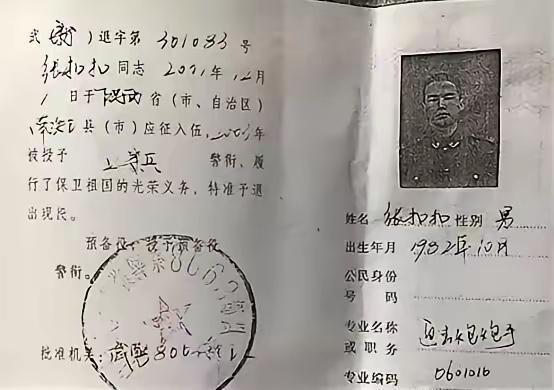 退字第 301083 号
张扣扣同志 2001年12月
1日于陕西省(市、自治区)
县(市)应征入伍,2003年
被授予 上等兵 警衔、履
行了保卫祖国的光荣义务,特准予退
出现役。
预备役,授予预备役
警衔。
批准机关:
姓名 张扣扣 性别 男
出生年月 1982年10月
公民身份
号 码
专业名称 迫击炮炮手
或职务
专业编码 0601010